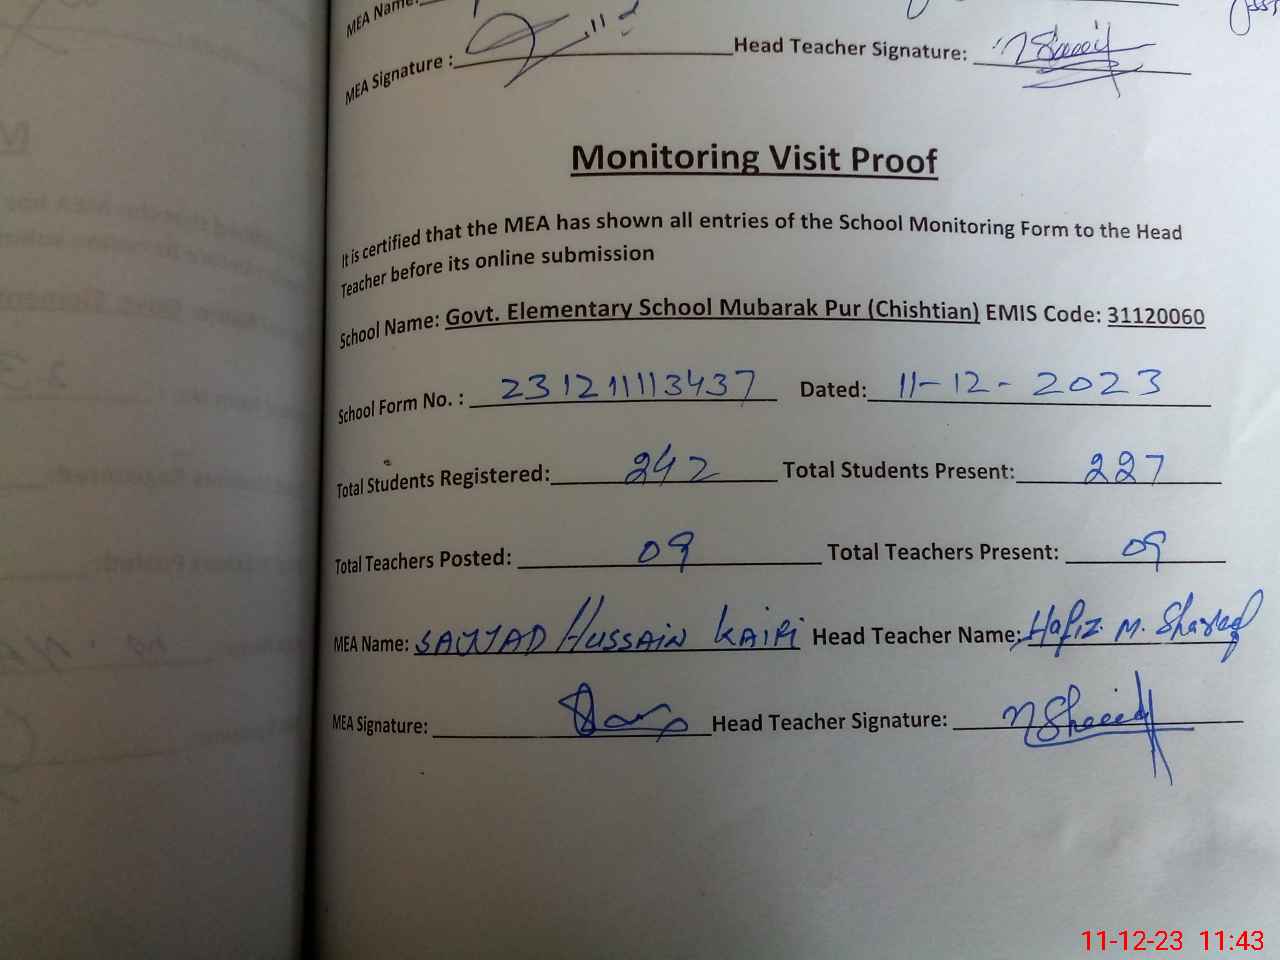 MEA Name:
MEA Signature : Head Teacher Signature:
Monitoring Visit Proof
It is certified that the MEA has shown all entries of the School Monitoring Form to the Head
Teacher before its online submission
School Name: Govt. Elementary School Mubarak Pur (Chishtian) EMIS Code: 31120060
School Form No. : 231211113437 Dated: 11-12-2023
Total Students Registered: 242 Total Students Present: 227
Total Teachers Posted: 09 Total Teachers Present: 09
MEA Name: SAJJAD HUSSAIN Head Teacher Name: Hafiz M. Shareef
MEA Signature: Head Teacher Signature:
11-12-23 11:43